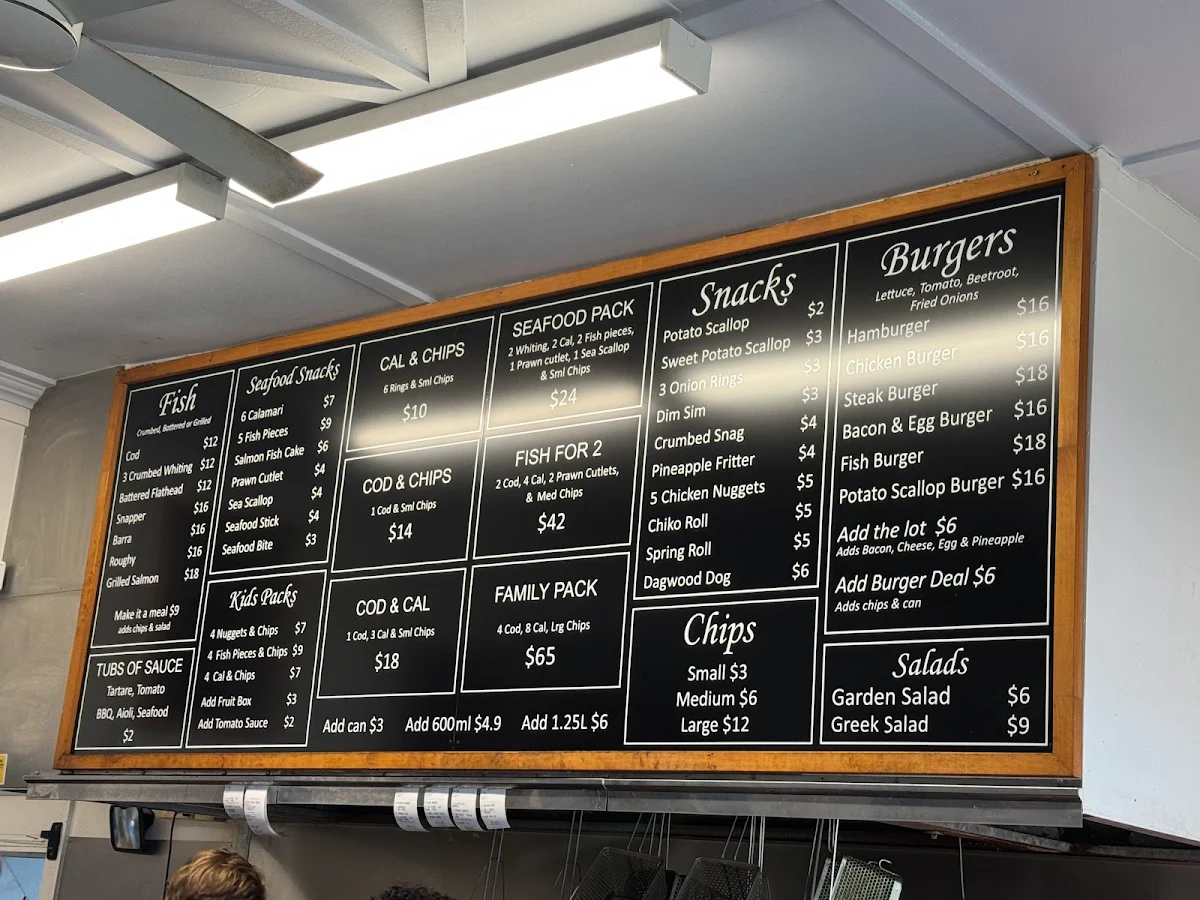 Fish
Crumbed, Battered or Grilled
Cod $12
3 Crumbed Whiting $12
Battered Flathead $12
Snapper $16
Barra $16
Roughy $16
Grilled Salmon $18
Make it a meal $9
adds chips & salad
TUBS OF SAUCE
Tartare, Tomato
BBQ, Aioli, Seafood
$2
Seafood Snacks
6 Calamari $7
5 Fish Pieces $9
Salmon Fish Cake $6
Prawn Cutlet $4
Sea Scallop $4
Seafood Stick $4
Seafood Bite $3
Kids Packs
4 Nuggets & Chips $7
4 Fish Pieces & Chips $9
4 Cal & Chips $7
Add Fruit Box $3
Add Tomato Sauce $2
CAL & CHIPS
6 Rings & Sml Chips
$10
COD & CHIPS
1 Cod & Sml Chips
$14
COD & CAL
1 Cod, 3 Cal & Sml Chips
$18
SEAFOOD PACK
2 Whiting, 2 Cal, 2 Fish pieces,
1 Prawn cutlet, 1 Sea Scallop
& Sml Chips
$24
FISH FOR 2
2 Cod, 4 Cal, 2 Prawn Cutlets,
& Med Chips
$42
FAMILY PACK
4 Cod, 8 Cal, Lrg Chips
$65
Add can $3 Add 600ml $4.9 Add 1.25L $6
Snacks
Potato Scallop $2
Sweet Potato Scallop $3
3 Onion Rings $3
Dim Sim $3
Crumbed Snag $4
Pineapple Fritter $4
5 Chicken Nuggets $5
Chiko Roll $5
Spring Roll $5
Dagwood Dog $6
Chips
Small $3
Medium $6
Large $12
Burgers
Lettuce, Tomato, Beetroot,
Fried Onions
Hamburger $16
Chicken Burger $16
Steak Burger $18
Bacon & Egg Burger $16
Fish Burger $18
Potato Scallop Burger $16
Add the lot $6
Adds Bacon, Cheese, Egg & Pineapple
Add Burger Deal $6
Adds chips & can
Salads
Garden Salad $6
Greek Salad $9